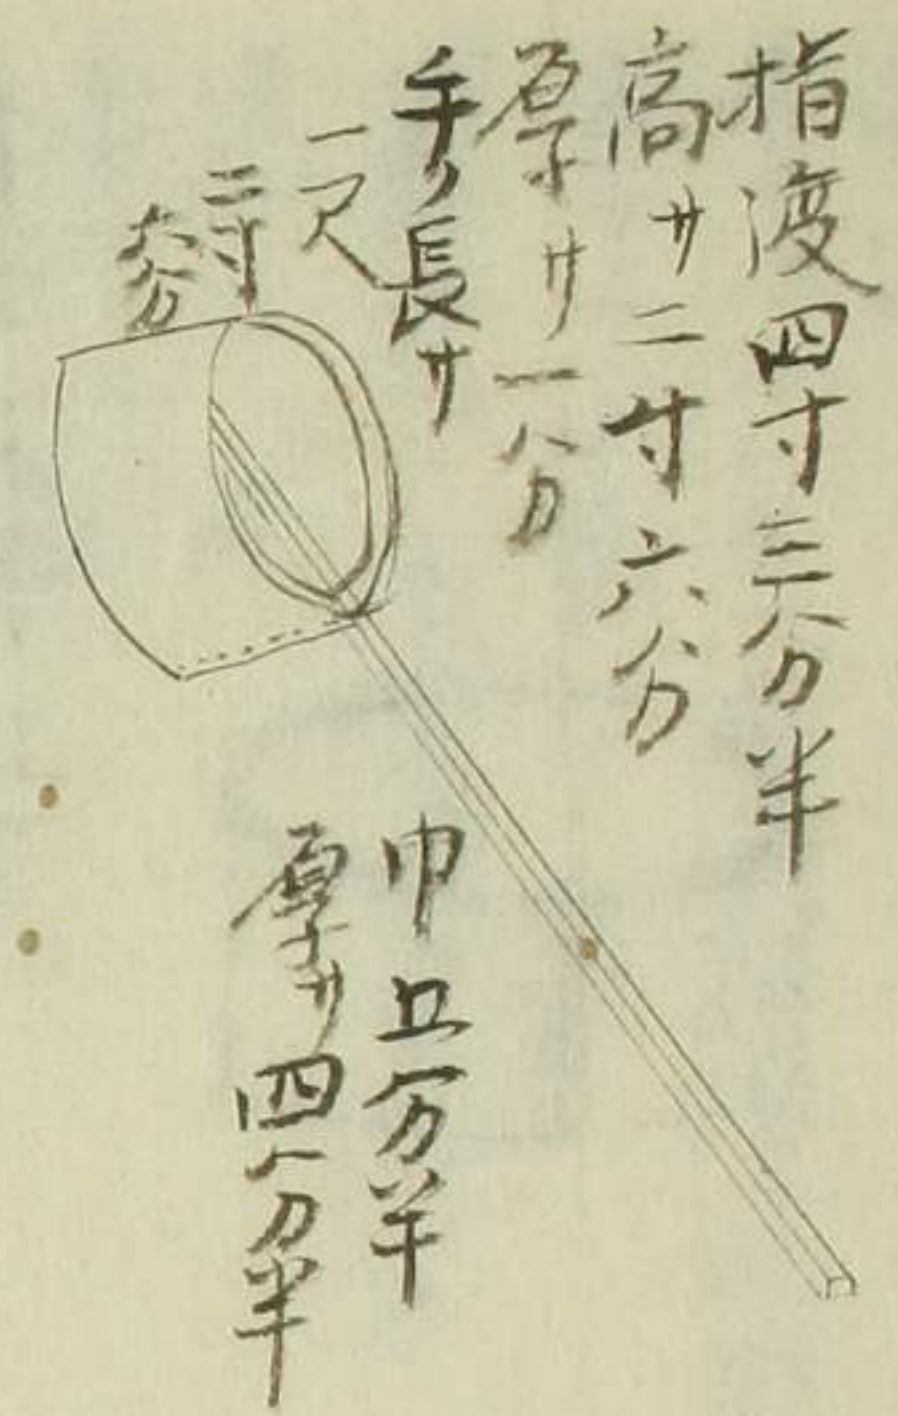 指渡四寸三分半
高サ二寸六分
厚サ一分
手ノ長サ
一尺
二寸
六分
巾五分半
厚サ四分半